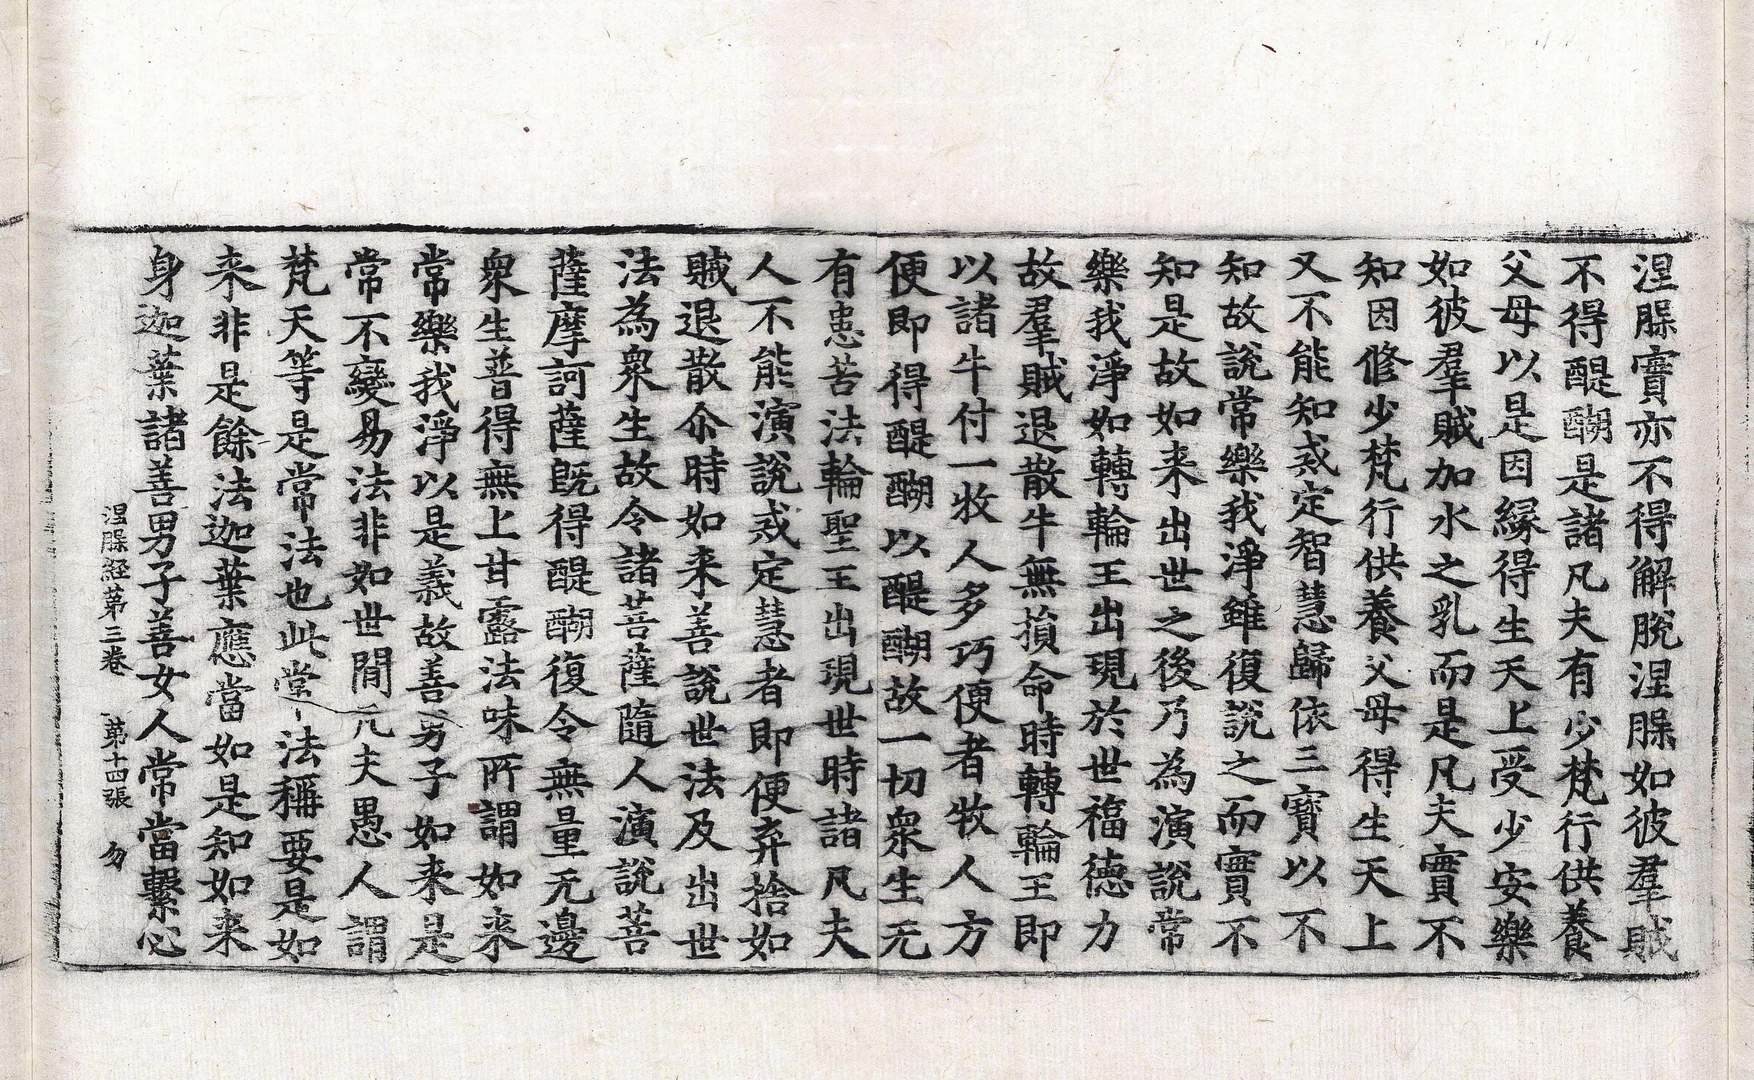 涅槃實亦不得解脫涅槃如彼羣賊
不得醍醐是諸凡夫有少梵行供養
父母以是因緣得生天上受少安樂
如彼羣賊加水之乳而是凡夫實不
知因修少梵行供養父母得生天上
又不能知戒定智慧歸依三寶以不
知故說常樂我淨雖復說之而實不
知是故如来出世之後乃為演說常
樂我淨如轉輪王出現於世福德力
故羣賊退散牛無損命時轉輪王即
以諸牛付一牧人多巧便者牧人方
便即得醍醐以醍醐故一切衆生无
有患苦法輪聖王出現世時諸凡夫
人不能演說戒定慧者即便弃捨如
賊退散尒時如来善說世法及出世
法為衆生故令諸菩薩隨人演說菩
薩摩訶薩既得醍醐復令無量无邊
衆生普得無上甘露法味所謂如来
常樂我淨以是義故善男子如来是
常不變易法非如世間凡夫愚人謂
梵天等是常法也此常法稱要是如
来非是餘法迦葉應當如是知如来
身迦葉諸善男子善女人常當繫心
涅槃経第三卷 第十四張 勿